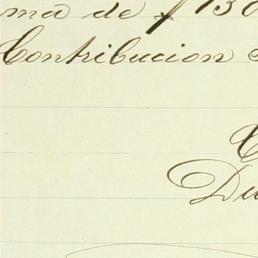 ma de $ 130
Contribucion
Du